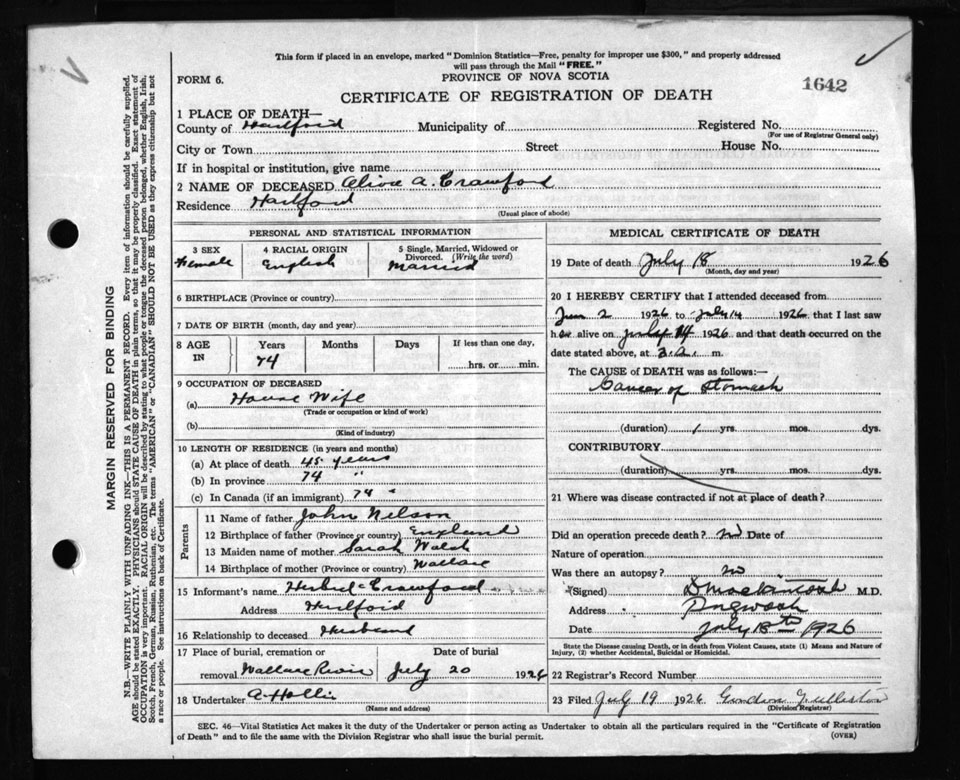 This form if placed in an envelope, marked "Dominion Statistics—Free, penalty for improper use $300," and properly addressed
will pass through the Mail "FREE."
FORM 6.
PROVINCE OF NOVA SCOTIA
1642
CERTIFICATE OF REGISTRATION OF DEATH
1 PLACE OF DEATH—
County of Hartford Municipality of Registered No.
(For use of Registrar General only)
City or Town Street House No.
If in hospital or institution, give name
2 NAME OF DECEASED Alice A. Crawford
Residence Hartford
(Usual place of abode)
PERSONAL AND STATISTICAL INFORMATION
3 SEX
Female
4 RACIAL ORIGIN
English
5 Single, Married, Widowed or
Divorced. (Write the word)
Married
6 BIRTHPLACE (Province or country)
7 DATE OF BIRTH (month, day and year)
8 AGE
IN
Years Months Days If less than one day,
74
hrs. or min.
9 OCCUPATION OF DECEASED
(a) House Wife
(Trade or occupation or kind of work)
(b)
(Kind of industry)
10 LENGTH OF RESIDENCE (in years and months)
(a) At place of death 45 years
(b) In province 74 "
(c) In Canada (if an immigrant) 74 "
Parents
11 Name of father John Nelson
12 Birthplace of father (Province or country) England
13 Maiden name of mother Sarah Walsh
14 Birthplace of mother (Province or country) Wallace
15 Informant's name Crawford
Address
16 Relationship to deceased Husband
17 Place of burial, cremation or Date of burial
removal Wallace River July 20 1926
18 Undertaker A. Hollis
(Name and address)
MEDICAL CERTIFICATE OF DEATH
19 Date of death July 18 1926
(Month, day and year)
20 I HEREBY CERTIFY that I attended deceased from
June 2 1926 to July 14 1926 that I last saw
her alive on July 14 1926 and that death occurred on
date stated above, at m.
The CAUSE of DEATH was as follows:—
Cancer of Stomach
(duration) 1 yrs. mos. dys.
CONTRIBUTORY
(duration) yrs. mos. dys.
21 Where was disease contracted if not at place of death?
Did an operation precede death? no Date of
Nature of operation
Was there an autopsy? no
(Signed) D Mackintosh M.D.
Address Pugwash
Date July 18th 1926
State the Disease causing Death, or in death from Violent Causes, state (1) Means and Nature of
Injury, (2) whether Accidental, Suicidal or Homicidal.
22 Registrar's Record Number
23 Filed July 19 1926 Gordon
(Division Registrar)
SEC. 46—Vital Statistics Act makes it the duty of the Undertaker or person acting as Undertaker to obtain all the particulars required in the "Certificate of Registration
of Death" and to file the same with the Division Registrar who shall issue the burial permit.
(OVER)
MARGIN RESERVED FOR BINDING
N.B.—WRITE PLAINLY WITH UNFADING INK—THIS IS A PERMANENT RECORD. Every item of information should be carefully supplied.
AGE should be stated EXACTLY. PHYSICIANS should STATE CAUSE OF DEATH in plain terms, so that it may be properly classified. Exact statement of
OCCUPATION is very important. RACIAL ORIGIN will be described by stating to what people or tongue the deceased person belonged, whether English, Irish,
Scotch, French, German, Russian, Ruthenian, etc. The terms "AMERICAN" or "CANADIAN" SHOULD NOT BE USED as they express citizenship but not
a race or people. See instructions on back of Certificate.